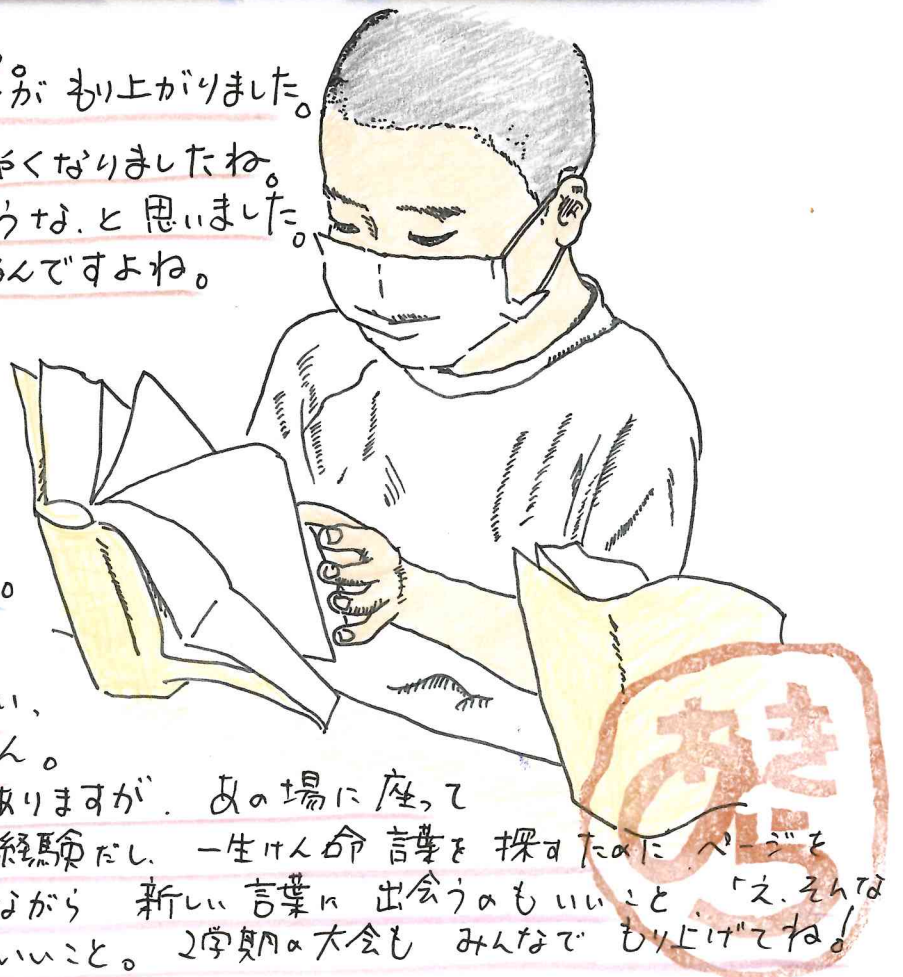 がもり上がりました。
やくなりましたね。
うな、と思いました。
んですよね。
。
い、
ん。
ありますが、あの場に座って
経験だし、一生けん命言葉を探すためにページを
ながら新しい言葉に出会うのもいいこと、「え、そんな
いいこと。2学期の大会もみんなでもり上げてね!
あきら